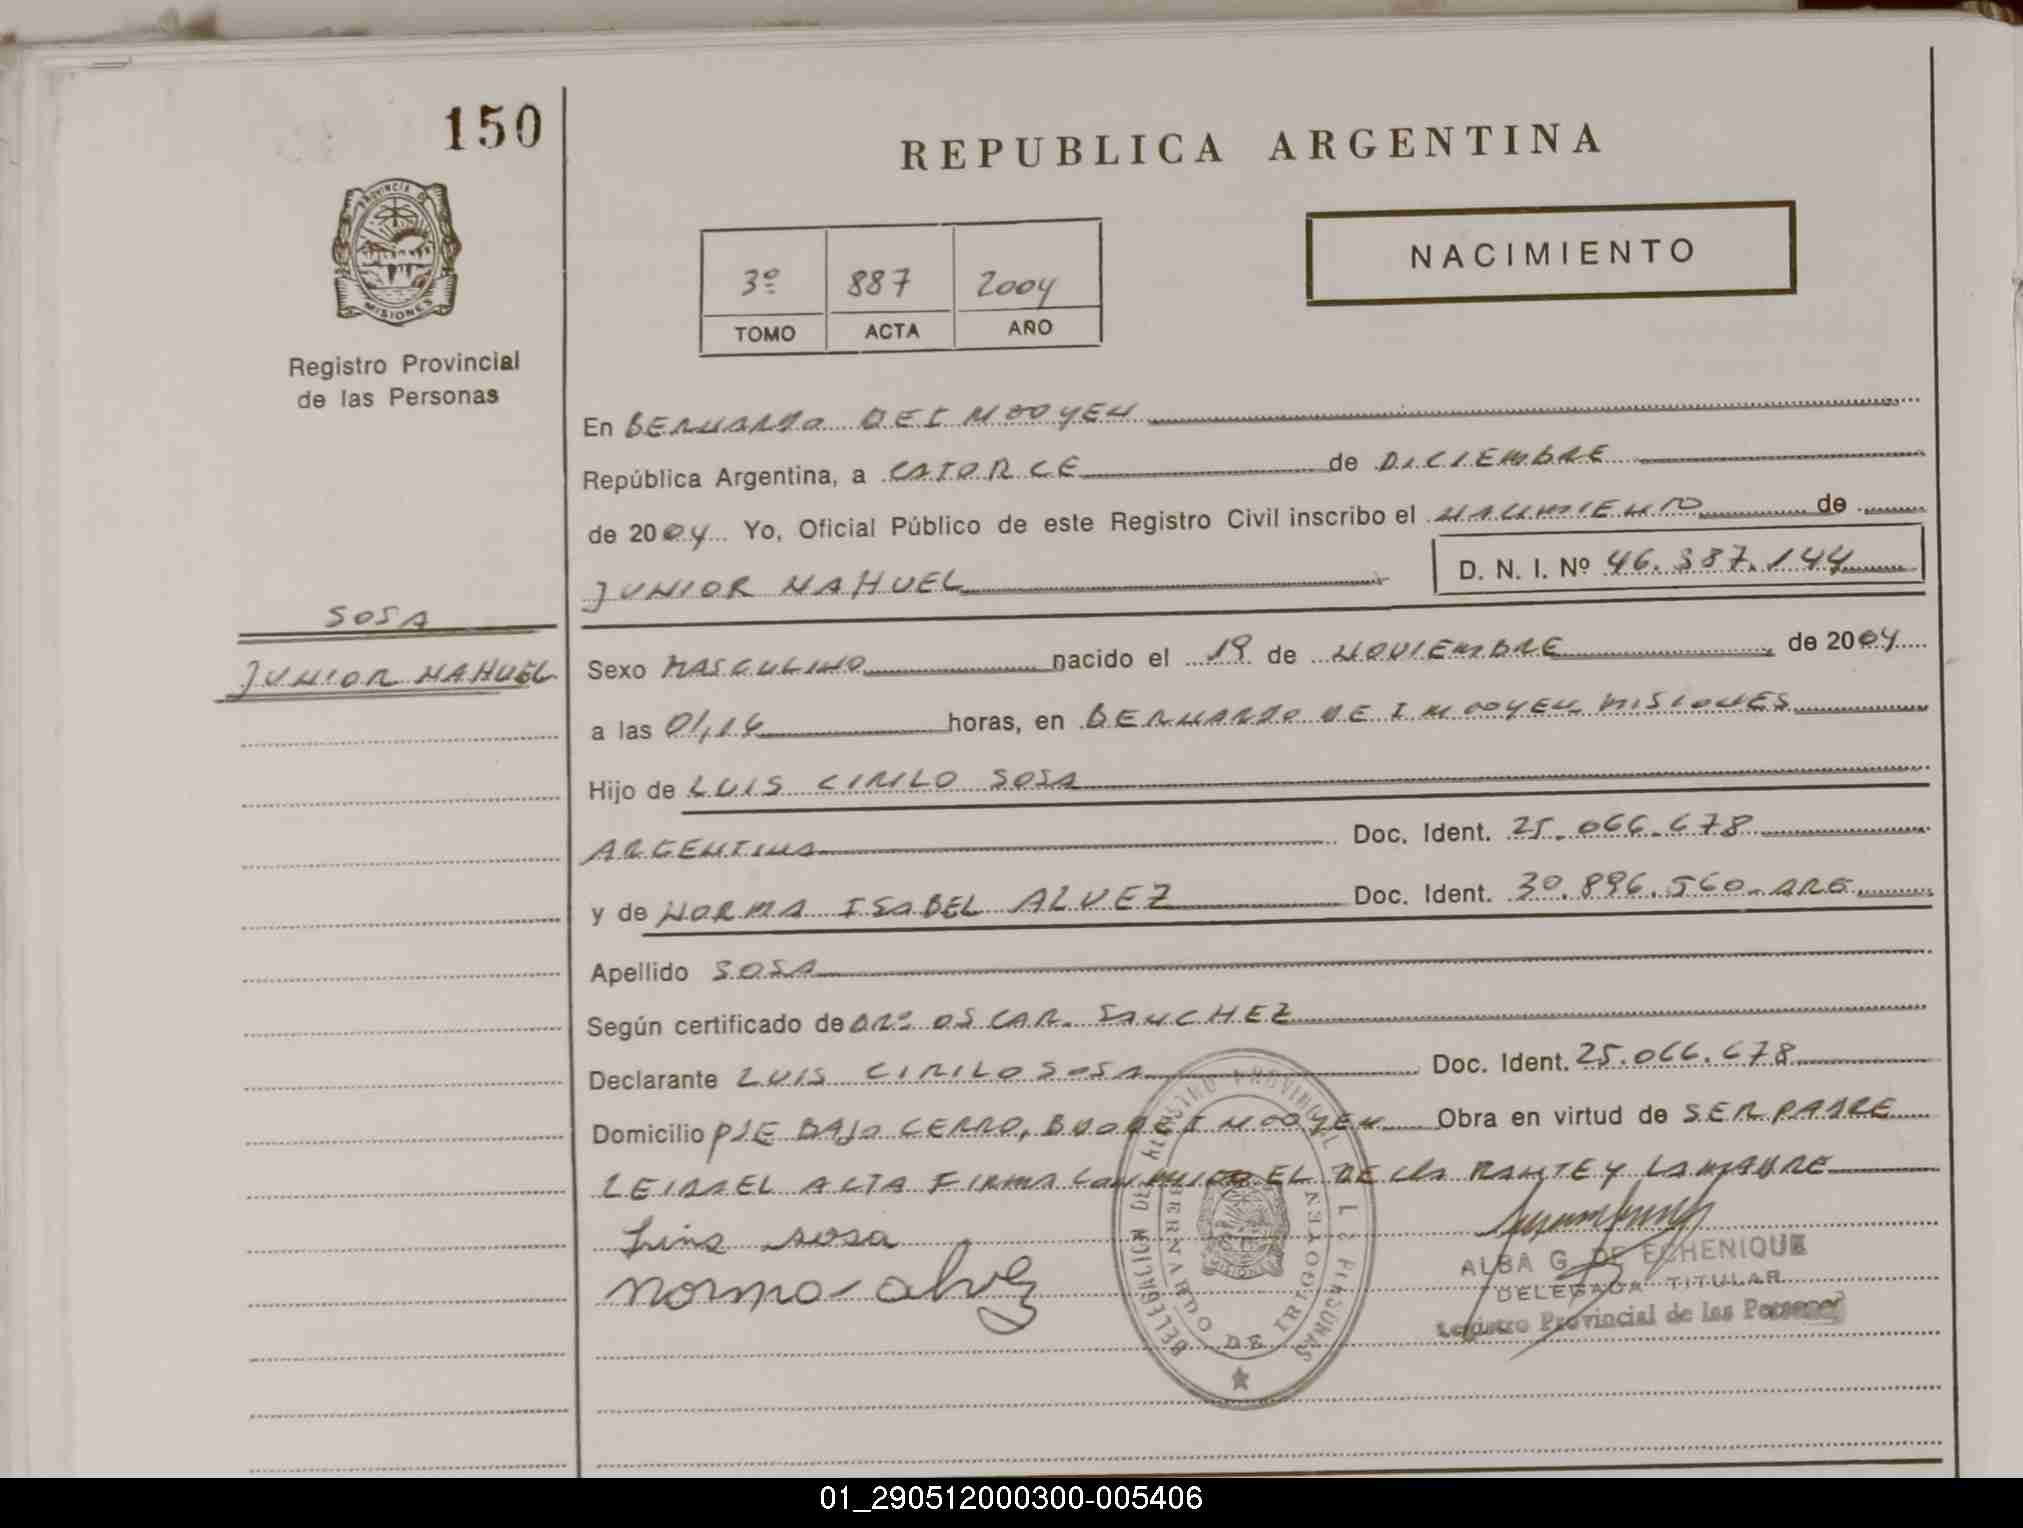 150
REPUBLICA ARGENTINA
NACIMIENTO
3º 887 2004
TOMO ACTA AÑO
PROVINCIA DE
MISIONES
Registro Provincial
de las Personas
En BERNARDO DE I RIGOYEN
República Argentina, a CATORCE de DICIEMBRE
de 2004 Yo, Oficial Público de este Registro Civil inscribo el NACIMIENTO de
JUNIOR NAHUEL D. N. I. Nº 46.387.144
SOSA
JUNIOR NAHUEL
Sexo MASCULINO nacido el 19 de NOVIEMBRE, de 2004
a las 01,16 horas, en BERNARDO DE IRIGOYEN MISIONES
Hijo de LUIS CIRILO SOSA
ARGENTINA Doc. Ident. 25.066.678
y de NORMA ISABEL ALVEZ Doc. Ident. 30.896.560. ARG.
Apellido SOSA
Según certificado de DRº OSCAR SANCHEZ
Declarante LUIS CIRILO SOSA Doc. Ident. 25.066.678
Domicilio PJE BAJO CERRO, Obra en virtud de SER PADRE
LEIDA EL ACTA FIRMA CONMIGO EL DECLARANTE Y LA MADRE
Luis sosa
Norma alvez
DELEGACION DEL REGISTRO PROVINCIAL DE L. PERSONAS
BERNARDO DE IRIGOYEN
ALBA G. DE ECHENIQUE
DELEGADA TITULAR
Registro Provincial de las Personas
01_290512000300-005406